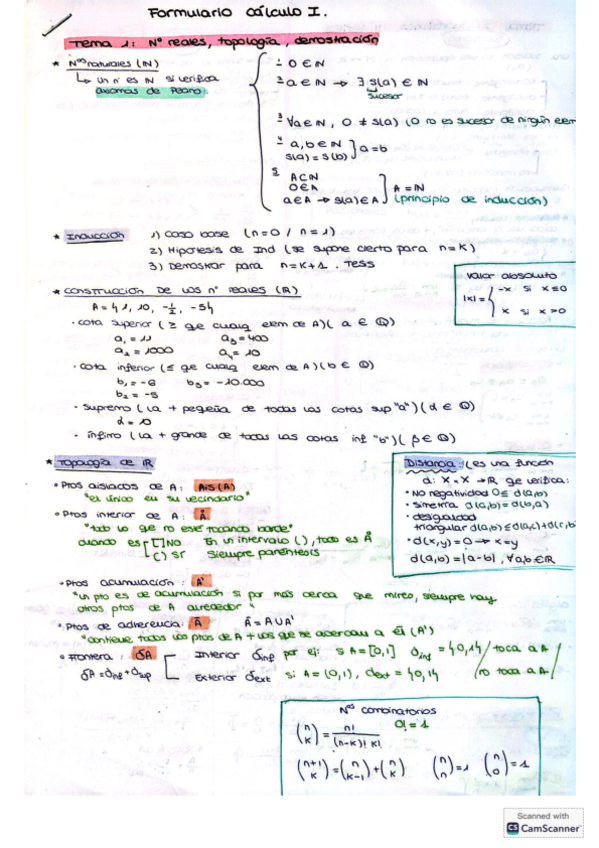 Formulario Cálculo I.
Tema 1: Nº reales, topología, demostración
* Nºs naturales (ℕ)
↳ un nº es ℕ si verifica
axiomas de Peano:
1- 0 ∈ ℕ
2- a ∈ ℕ → ∃ s(a) ∈ ℕ
sucesor
3- ∀a ∈ ℕ, 0 ≠ s(a) (0 no es sucesor de ningún elem
4- a, b ∈ ℕ
s(a) = s(b) } a = b
5- A ⊂ ℕ
0 ∈ A
a ∈ A → s(a) ∈ A } A = ℕ
(principio de inducción)
* Inducción
1) Caso base (n=0 / n=1)
2) Hipotesis de Ind (se supone cierto para n=K)
3) Demostrar para n=K+1. Tess
Valor absoluto
|x| = { -x si x≤0
x si x>0
* Construcción de los nº reales (ℝ)
A = {1, 10, -1/2, -5}
· cota superior (≥ que cualq elem de A) (a ∈ ℚ)
a₁ = 11 a₃ = 400
a₂ = 1000 a₄ = 10
· cota inferior (≤ que cualq elem de A) (b ∈ ℚ)
b₁ = -6 b₃ = -10.000
b₂ = -5
· Supremo (la + pequeña de todas las cotas sup "a") (α ∈ ℚ)
α = 10
· ínfimo (la + grande de todas las cotas inf "b") (β ∈ ℚ)
* Topología de ℝ
· Ptos aislados de A: Ais(A)
"el único en su vecindario"
· Ptos interior de A: Å
"todo lo que no este tocando borde"
cuando es [] NO En un intervalo (), todo es Å
() SI siempre paréntesis
Distancia: (es una función
d: X × X → ℝ que verifica:
· No negatividad 0 ≤ d(a,b)
· simetría d(a,b) = d(b,a)
· desigualdad
triangular d(a,b) ≤ d(a,c) + d(c,b)
· d(x,y) = 0 → x = y
d(a,b) = |a-b|, ∀a,b ∈ ℝ
· Ptos acumulación: A'
"un pto es de acumulación si por más cerca que mires, siempre hay
otros ptos de A alrededor"
· Ptos de adherencia: Ā Ā = A ∪ A'
"contiene todos los ptos de A + los que se acercan a él (A')
· Frontera: δA
δA = δinf + δsup
Interior δinf por ej: si A = [0,1] δinf = {0,1} / toca a A
Exterior δext si A = (0,1), δext = {0,1} / no toca a A
Nºs combinatorios
(n K) = n! / (n-K)! K! 0! = 1
(n+1 K) = (n K-1) + (n K) (n n) = 1 (n 0) = 1
Scanned with
CS CamScanner